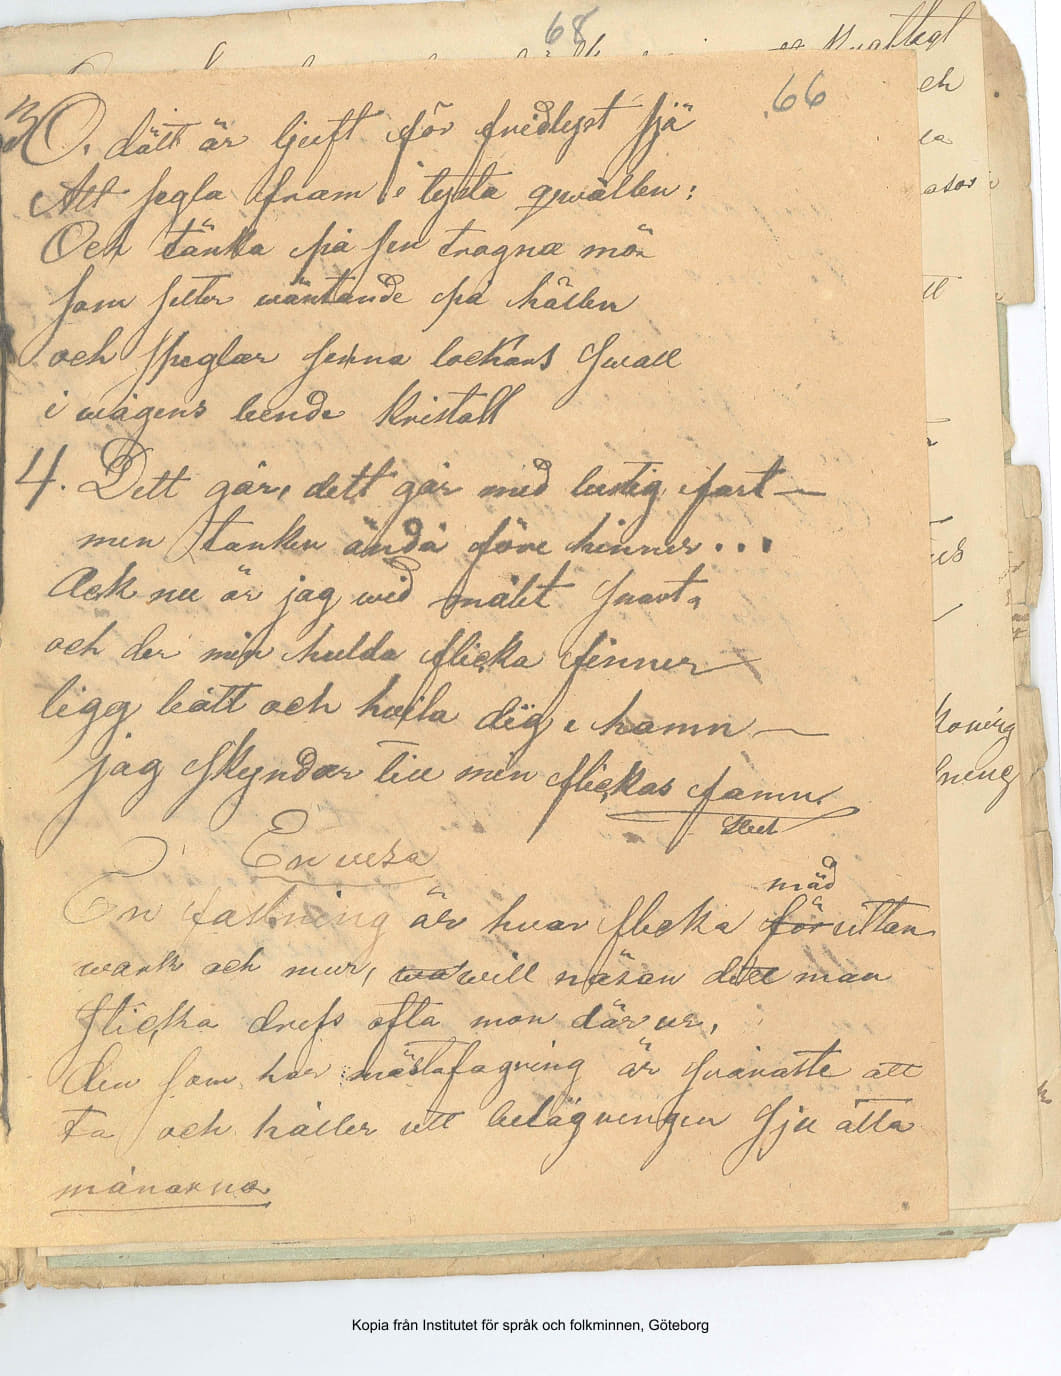 68
66
3 O, dätt är ljuft för fridlyst sjä
Att segla fram i tysta qwällen:
Och tänka på sen trogna mön
som sitter wäntande på hällen
och speglar sinna lockars swall
i wågens leende kristall
4. Dett går, dett går med lustig fart —
men tanken ändå före hinner...
Ack nu är jag wid målet snart,
och der min hulda flicka finner
ligg bått och hwila dig i hamn —
jag skyndar till min flickas famn.
Slut
En visa
mäd
En fästning är hvar flicka för uttan
wark och mur, wa will näsan dett man
flicka drifs ofta mon där ur,
den som har mästa fagring är svåraste att
ta och håller utt belägringen sju åtta
månarna
Kopia från Institutet för språk och folkminnen, Göteborg